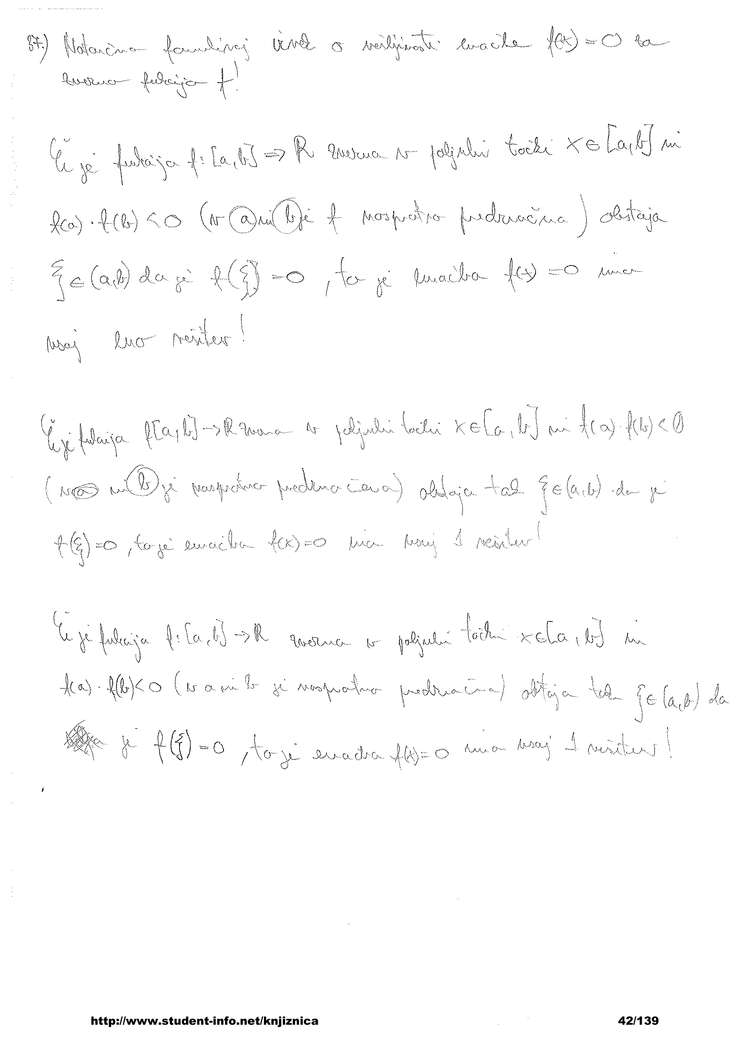 37.) Natančno formuliraj izrek o rešljivosti enačbe f(x) = 0 za
zvezno funkcijo f!
Če je funkcija f: [a,b] => R zvezna v poljubni točki x ∈ [a,b] in
f(a) · f(b) < 0 (v a in b je f nasprotno predznačna) obstaja
ξ ∈ (a,b) da je f(ξ) = 0, to je enačba f(x) = 0 ima
vsaj eno rešitev!
Če je funkcija f[a,b] -> R zvezna v poljubni točki x ∈ [a,b] in f(a) · f(b) < 0
(v a in b je nasprotno predznačena) obstaja tak ξ ∈ (a,b) da je
f(ξ) = 0, to je enačba f(x) = 0 ima vsaj 1 rešitev!
Če je funkcija f: [a,b] -> R zvezna v poljubni točki x ∈ [a,b] in
f(a) · f(b) < 0 (v a in b je nasprotno predznačna) obstaja tak ξ ∈ (a,b) da
je f(ξ) = 0, to je enačba f(x) = 0 ima vsaj 1 rešitev!
http://www.student-info.net/knjiznica 42/139